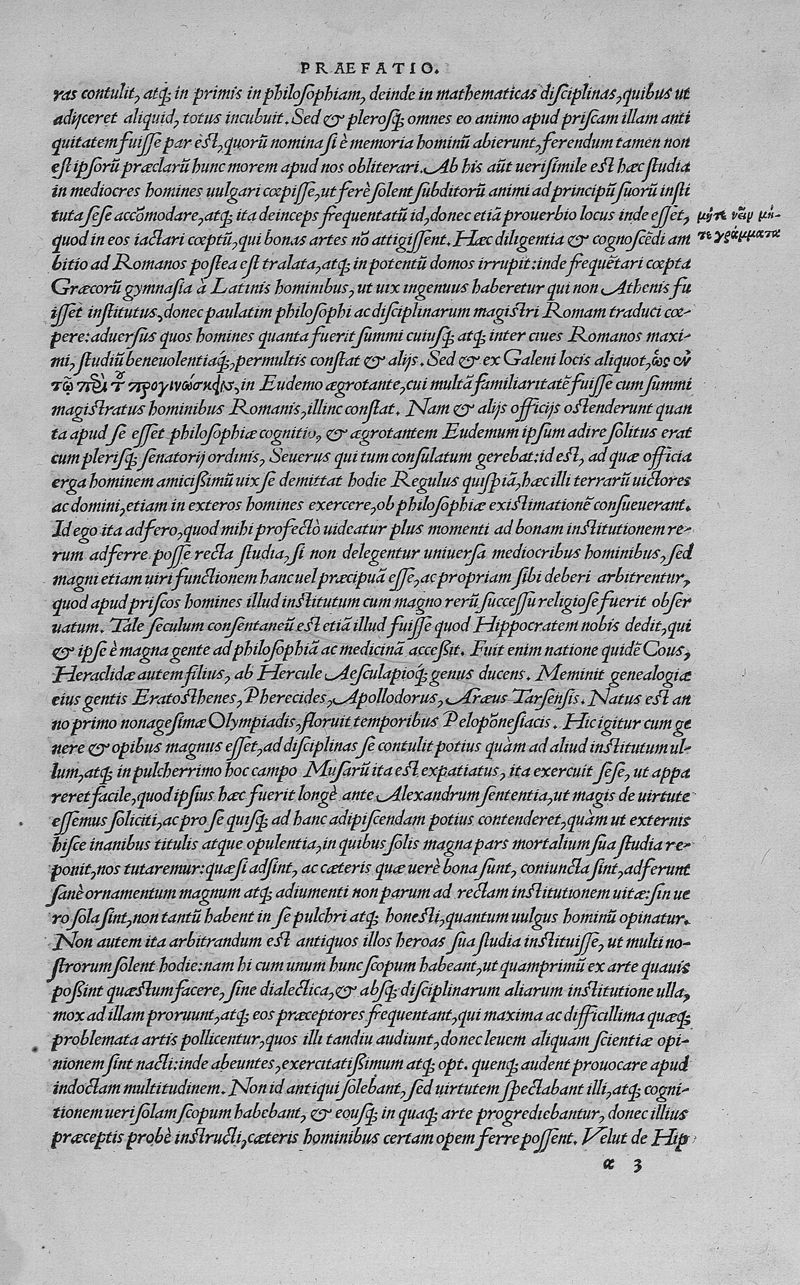 PRAEFATIO.
ras contulit, atq; in primis in philosophiam, deinde in mathematicas disciplinas, quibus ut
adijceret aliquid, totus incubuit. Sed & plerosq; omnes eo animo apud priscam illam anti
quitatem fuisse par est, quorũ nomina si è memoria hominũ abierunt, ferendum tamen non
est ipsorũ præclarũ hunc morem apud nos obliterari. Ab his aũt uerisimile est hæc studia
in mediocres homines uulgari cœpisse, ut ferè solent subditorũ animi ad principũ suorũ insti
tuta sese accõmodare, atq; ita deinceps frequentatũ id, donec etiã prouerbio locus inde esset,
μήτε νεῖν μή-
quod in eos iactari cœptũ, qui bonas artes nõ attigissent. Hæc diligentia & cognoscẽdi am
τε γράμματα
bitio ad Romanos postea est tralata, atq; in potentũ domos irrupit: inde frequẽtari cœpta
Græcorũ gymnasia à Latinis hominibus, ut uix ingenuus haberetur qui non Athenis fu
isset institutus, donec paulatim philosophi ac disciplinarum magistri Romam traduci cœ-
pere: aduersus quos homines quanta fuerit summi cuiusq; atq; inter ciues Romanos maxi-
mi, studiũ beneuolentiaq;, permultis constat & alijs. Sed & ex Galeni locis aliquot, ὡς ἐν
τῷ περὶ τ προγινώσκειν, in Eudemo ægrotante, cui multã familiaritatẽ fuisse cum summi
magistratus hominibus Romanis, illinc constat. Nam & alijs officijs ostenderunt quan
ta apud se esset philosophiæ cognitio, & ægrotantem Eudemum ipsum adire solitus erat
cum plerisq; senatorij ordinis, Seuerus qui tum consulatum gerebat: id est, ad quæ officia
erga hominem amicissimũ uix se demittat hodie Regulus quispiã, hæc illi terrarũ uictores
ac domini, etiam in exteros homines exercere, ob philosophiæ existimationẽ consueuerant.
Id ego ita adfero, quod mihi profectò uideatur plus momenti ad bonam institutionem re-
rum adferre posse recta studia, si non delegentur uniuersa mediocribus hominibus, sed
magni etiam uiri functionem hanc uel præcipuã esse, ac propriam sibi deberi arbitrentur,
quod apud priscos homines illud institutum cum magno rerũ successu religiose fuerit obser
uatum. Tale seculum consentaneũ est etiã illud fuisse quod Hippocratem nobis dedit, qui
& ipse è magna gente ad philosophiã ac medicinã accessit. Fuit enim natione quidẽ Cous,
Heraclidæ autem filius, ab Hercule Aesculapioq; genus ducens. Meminit genealogiæ
eius gentis Eratosthenes, Pherecides, Apollodorus, Aræus Tarsensis. Natus est an
no primo nonagesimæ Olympiadis, floruit temporibus Pelopõnesiacis. Hic igitur cum ge
nere & opibus magnus esset, ad disciplinas se contulit potius quàm ad aliud institutum ul-
lum, atq; in pulcherrimo hoc campo Musarũ ita est expatiatus, ita exercuit sese, ut appa
reret facile, quod ipsius hæc fuerit longè ante Alexandrum sententia, ut magis de uirtute
essemus soliciti, ac pro se quisq; ad hanc adipiscendam potius contenderet, quàm ut externis
hisce inanibus titulis atque opulentia, in quibus solis magna pars mortalium sua studia re-
ponit, nos tutaremur: quæ si adsint, ac cæteris quæ uerè bona sunt, coniuncta sint, adferunt
sanè ornamentum magnum atq; adiumenti non parum ad rectam institutionem uitæ: sin ue
ro sola sint, non tantũ habent in se pulchri atq; honesti, quantum uulgus hominũ opinatur.
Non autem ita arbitrandum est antiquos illos heroas sua studia instituisse, ut multi no-
strorum solent hodie: nam hi cum unum hunc scopum habeant, ut quamprimũ ex arte quauis
possint quæstum facere, sine dialectica, & absq; disciplinarum aliarum institutione ulla,
mox ad illam proruunt, atq; eos præceptores frequentant, qui maxima ac difficillima quæq;
problemata artis pollicentur, quos illi tandiu audiunt, donec leuem aliquam scientiæ opi-
nionem sint nacti: inde abeuntes, exercitatissimum atq; opt. quenq; audent prouocare apud
indoctam multitudinem. Non id antiqui solebant, sed uirtutem spectabant illi, atq; cogni-
tionem ueri solam scopum habebant, & eousq; in quaq; arte progrediebantur, donec illius
præceptis probè instructi, cæteris hominibus certam opem ferre possent. Velut de Hip
α 3